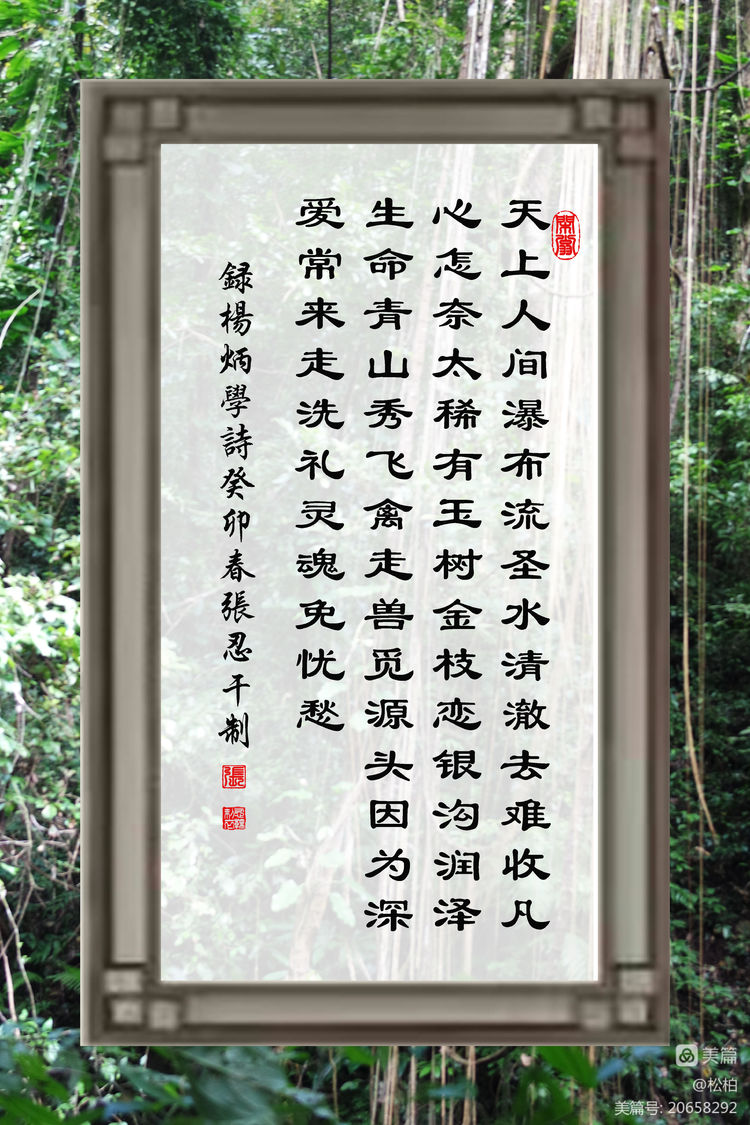 天上人间瀑布流圣水清澈去难收凡
心怎奈太稀有玉树金枝恋银沟润泽
生命青山秀飞禽走兽觅源头因为深
爱常来走洗礼灵魂免忧愁
録楊炳學詩癸卯春張忍干制
張
美篇
@松柏
美篇号: 20658292